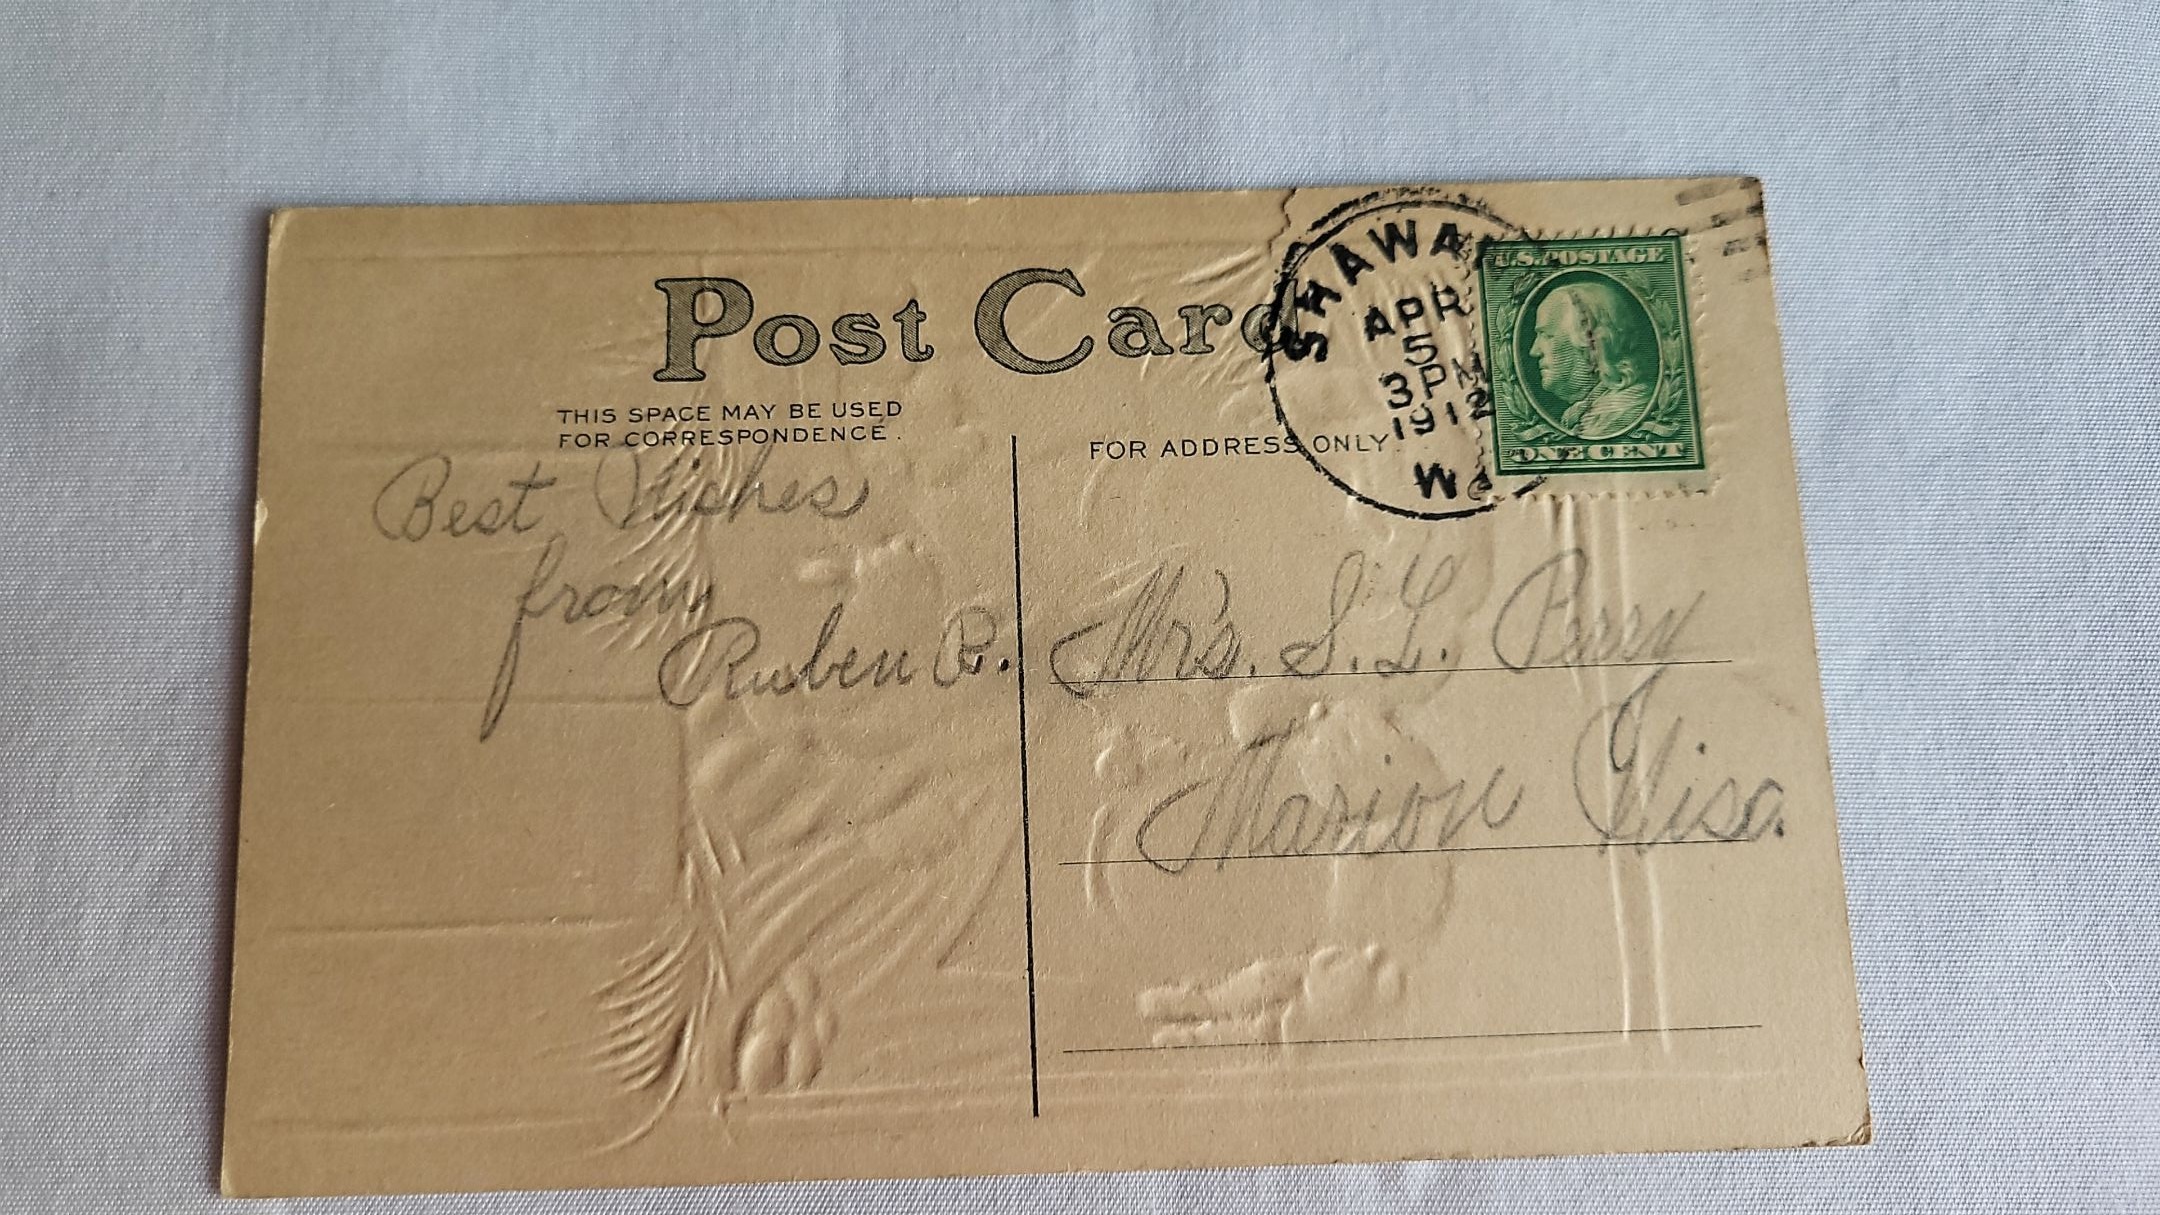 Post Card
THIS SPACE MAY BE USED
FOR CORRESPONDENCE.
FOR ADDRESS ONLY.
SHAWA
APR
5
3 PM
1912
WIS
U.S. POSTAGE
ONE CENT
Best Wishes
from
Ruben R.
Mrs. S. L. Perry
Marion Wisc.